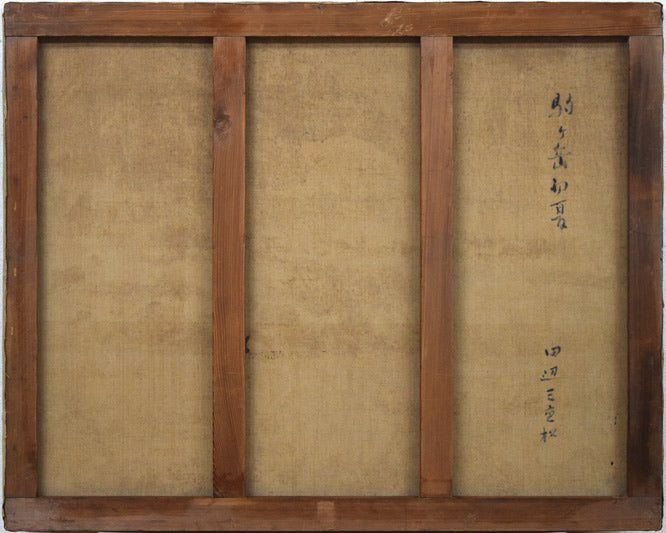 駒ヶ岳初夏
田辺三重松